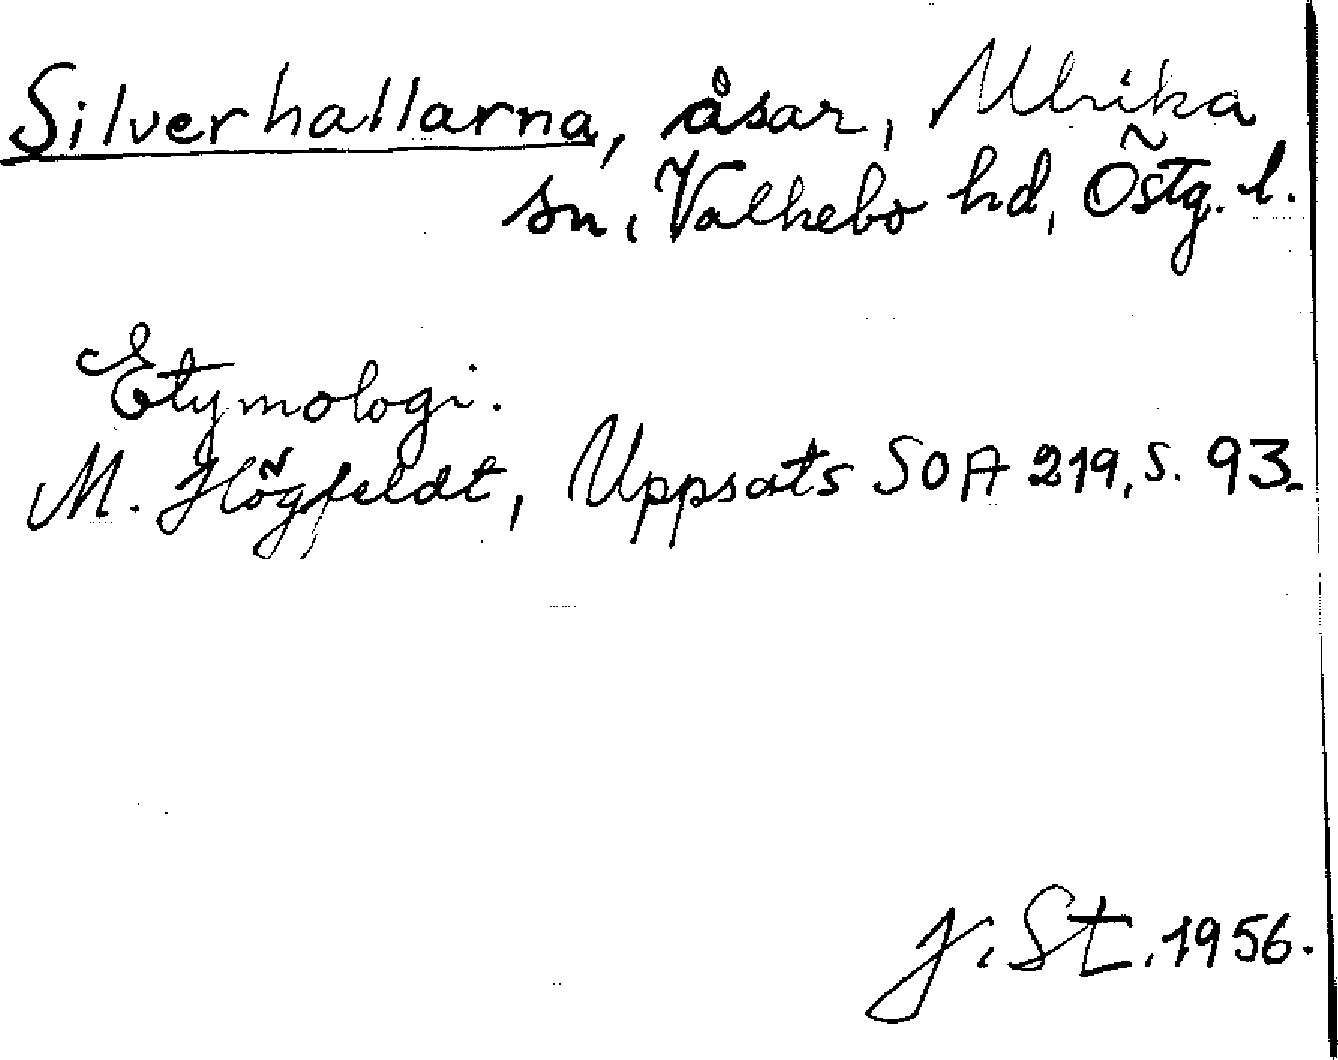 Silverhallarna, åsar, Ulrika
sn, Valkebo hd, Östg. l.
Etymologi.
M. Högfeldt, Uppsats SOA 219, s. 93.
J. St. 1956.